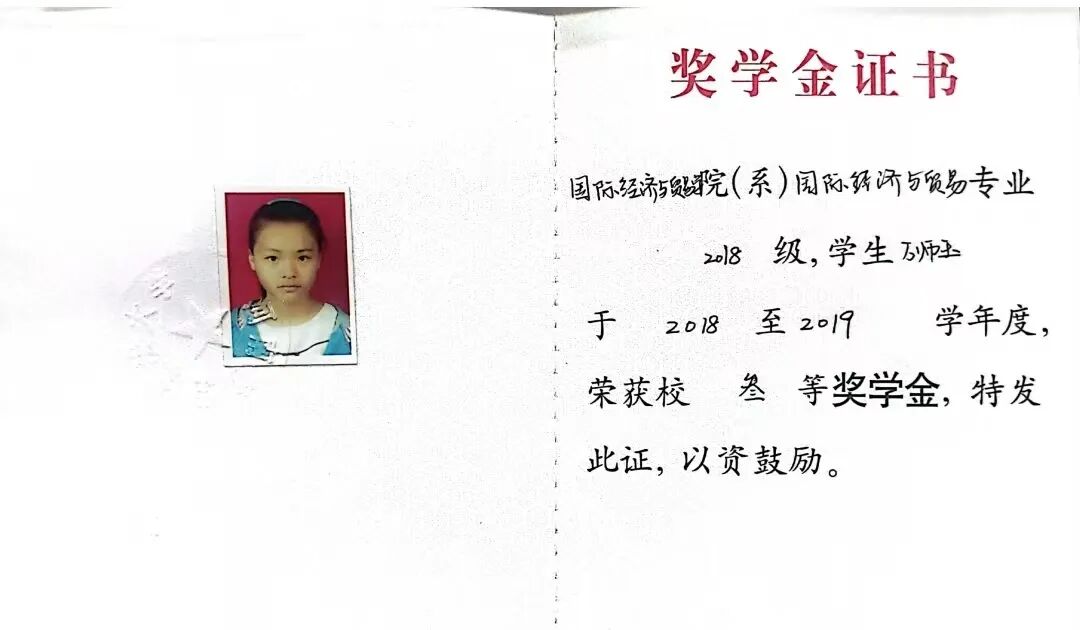 奖学金证书
国际经济与贸易学院(系)国际经济与贸易专业
2018 级,学生
于 2018 至 2019 学年度,
荣获校 叁 等奖学金,特发
此证,以资鼓励。